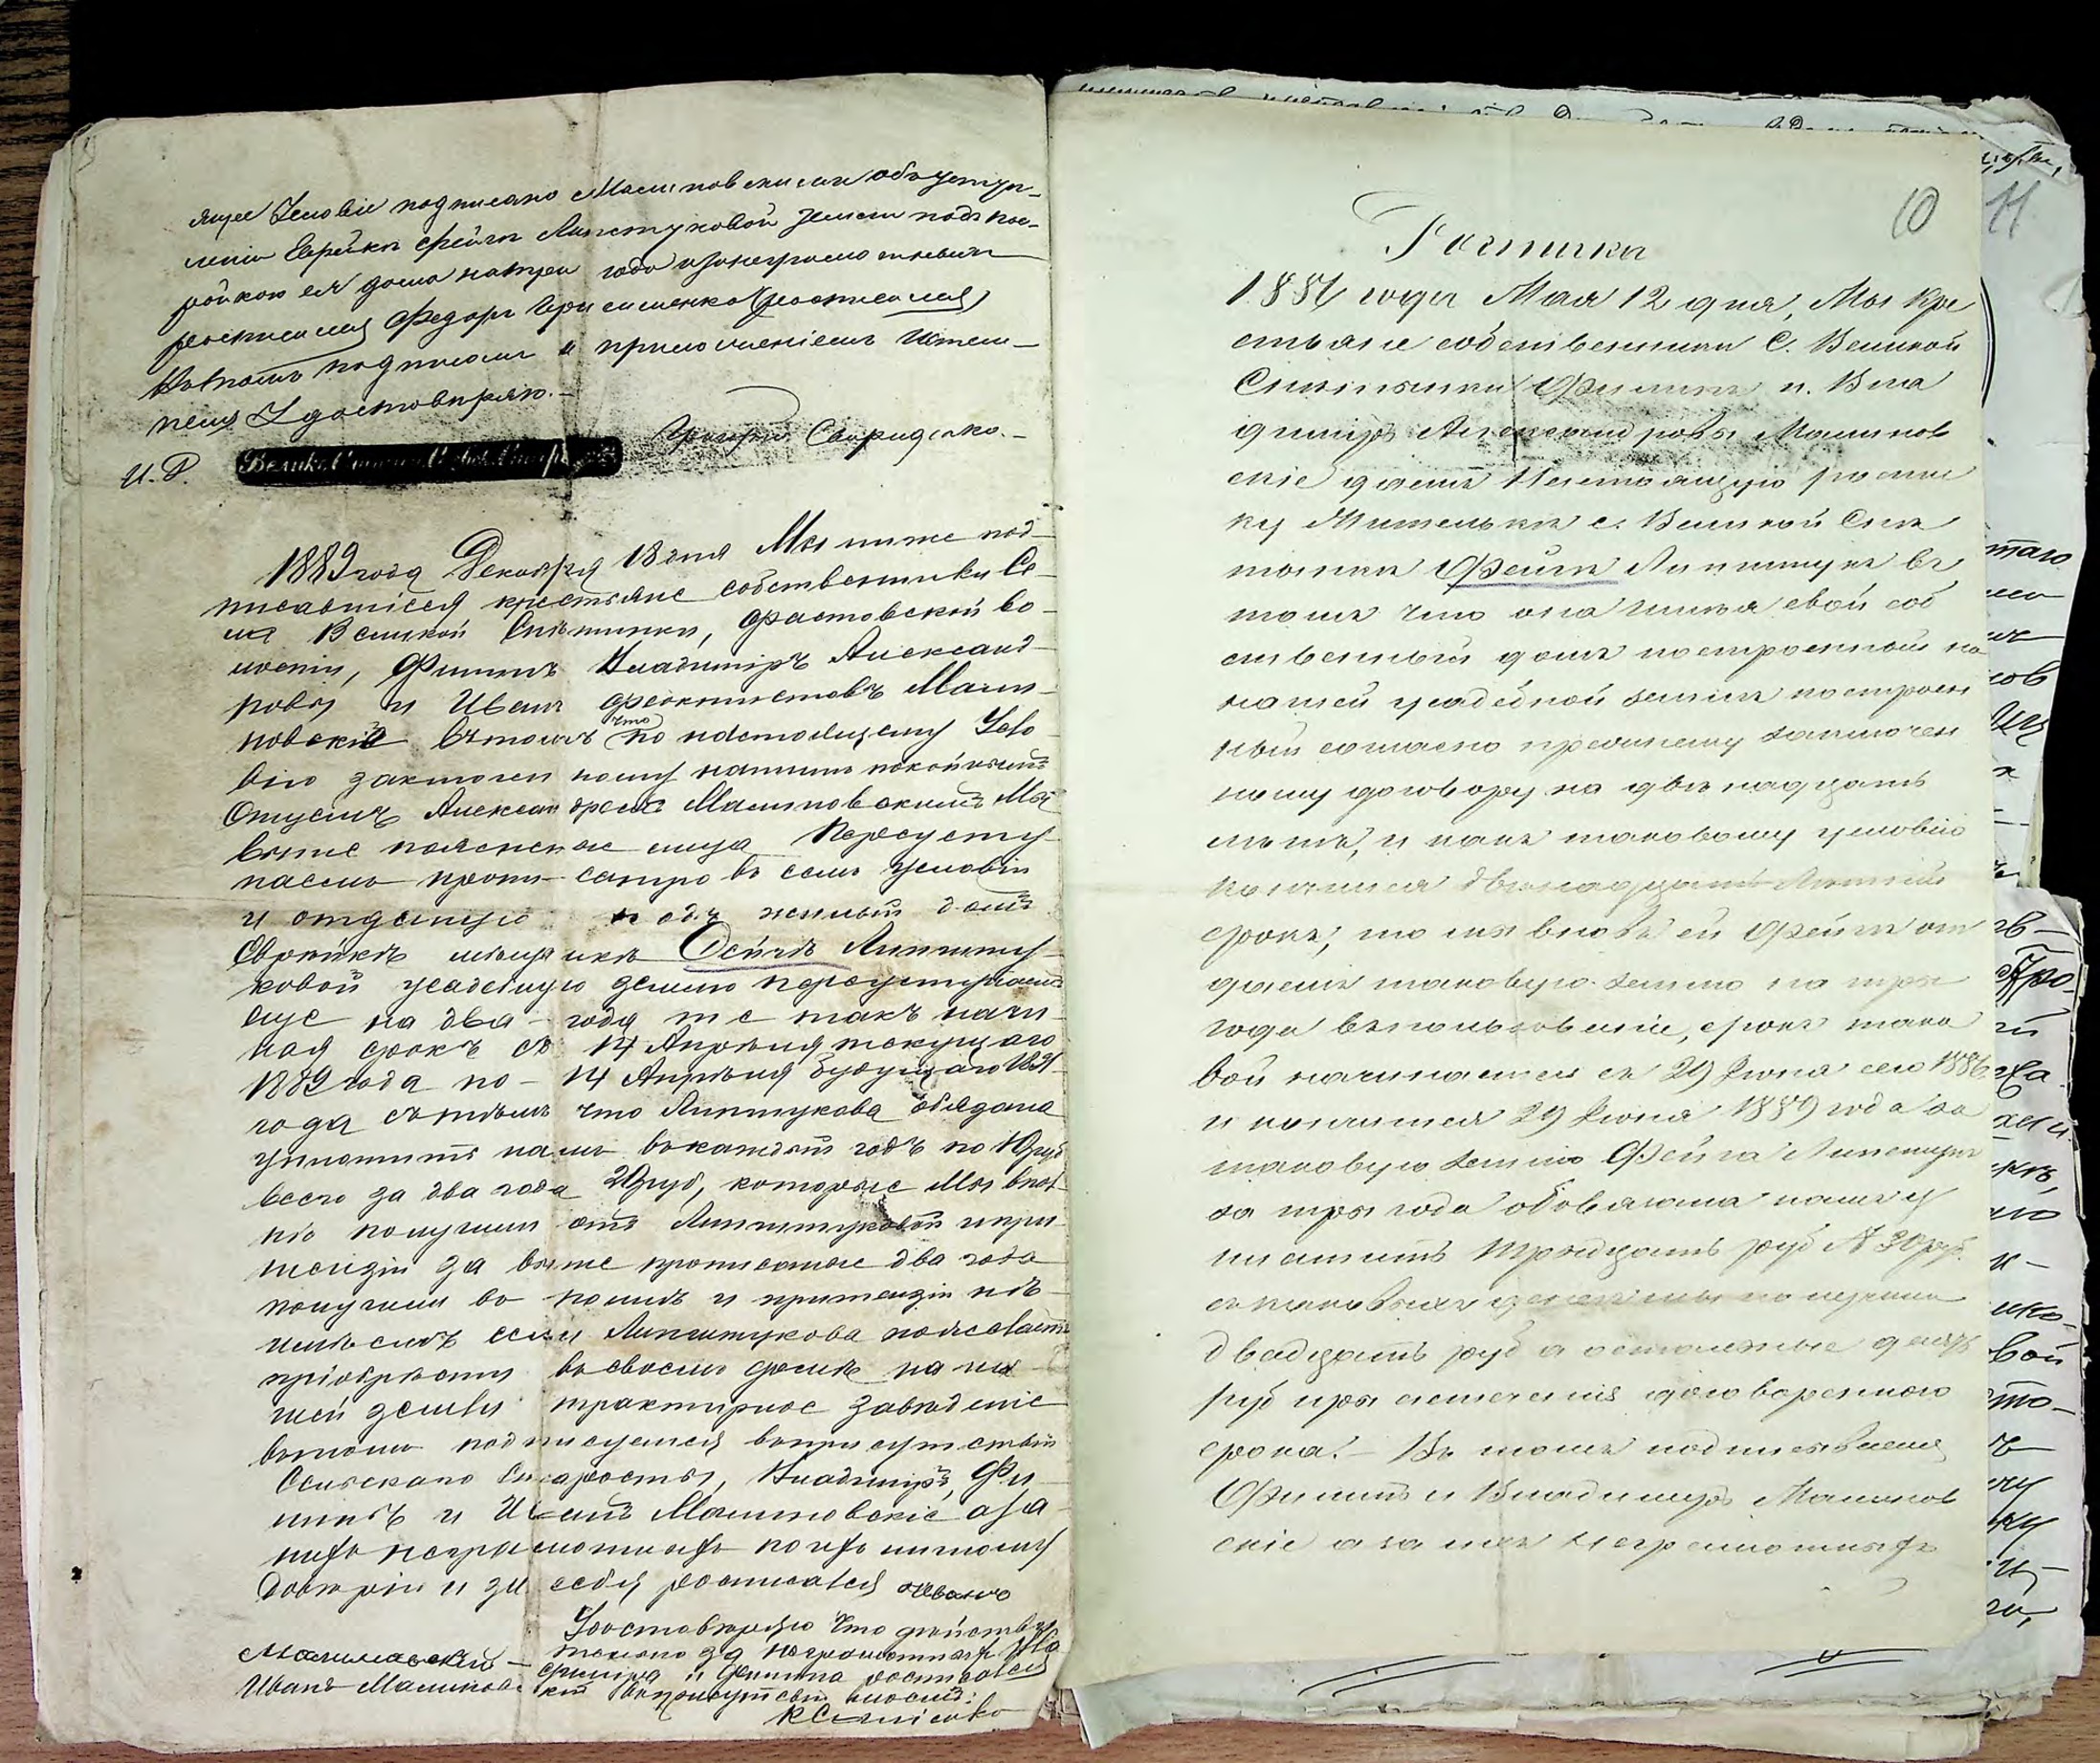 ящее Условіе подписано Малиновскими объ уступ-
леніи Еврейки Фейги Липштуковой земли подъ пос-
ройкою ея дома на три года и за неграмотныхъ
росписался Федоръ Герасименко (росписался)
подписомъ и приложеніемъ Штем-
пеля Удостовѣряю.-
И. Р.
Григорій Свириденко.-
1889 года Декабря 18 дня Мы ниже под-
писавшіеся крестьяне собственники Се-
ла Великой Снѣтинки, Фастовской во-
лости, Филипъ Владиміръ Александ-
ровы и Иванъ Феоктистовъ Мали-
новскіе вътомъ что по настоящему Усло-
вію заключенному нашимъ покойнымъ
Отцемъ Александромъ Малиновскимъ Мы
выше поясненые лица Переусту-
паемъ прописанную въ семъ Условіи
и отданую подъ жилый домъ
Еврейкѣ мѣщанкѣ Фейгѣ Липшту-
ковой усадебную землю переуступаемъ
еще на два года т е такъ начи-
ная срокъ съ 14 Апрѣля текущаго
1889 года по - 14 Апрѣля будущаго 1891
года съ тѣмъ что Липштукова обязана
уплотить намъ въкаждый годъ по 10 руб
всего за два года 20 руб, которые Мы впол-
нѣ получили отъ Липштуковой и при-
тензіи за выше прописаные два года
получили во полнѣ и притензіи не
имѣемъ если Липштукова пожелаетъ
пріобрѣсти въ своемъ домѣ на на-
шей земли трактирное заведеніе
вътомъ подписуемся въприсутствіи
Сельскаго Старосты, Владиміръ, Фи-
липъ и Иванъ Малиновскіе а за
нихъ неграмотныхъ по ихъ личному
довѣрію и за себя росписался Иванъ
Малиновскій -
Удостовѣряю что дѣйстви-
тельно за неграмотныхъ Вла-
диміра и Филипа росписался
Иванъ Малиновскій въприсутствіи моемъ:
10
11
Росписка
1886 года Мая 12 дня, Мы Кре
стьяне собственники С. Великой
Снитынки Филипъ и Вла
диміръ Александровы Малинов
скіе даемъ Настоящую роспи
ку Жительки с. Великой Сни
тынки Фейги Липштукъ въ
томъ что она имѣя свой соб
ственный домъ построенный на
нашей усадебной земли построен
ный согласно прежнему заключен
ному договору на двѣнадцать
лѣтъ, и какъ таковому условію
кончился двѣнадцати Лѣтній
срокъ, то мы вновь ей Фейги от
даемъ таковую землю на три
года въпользованіе, срокъ тако
вой начинается съ 29 Іюня сего 1886
и кончится 29 Іюня 1889 года за
таковую землю Фейга Липштукъ
за три года обовязана намъ у
платить тридцать руб № 30 руб.
съ таковыхъ денегъ мы получили
двадцать руб а остальные десять
руб при истеченіи договоренного
срока. - Въ томъ подписываемся
Филипъ и Владиміръ Малинов
скіе а за нихъ Неграмотныхъ